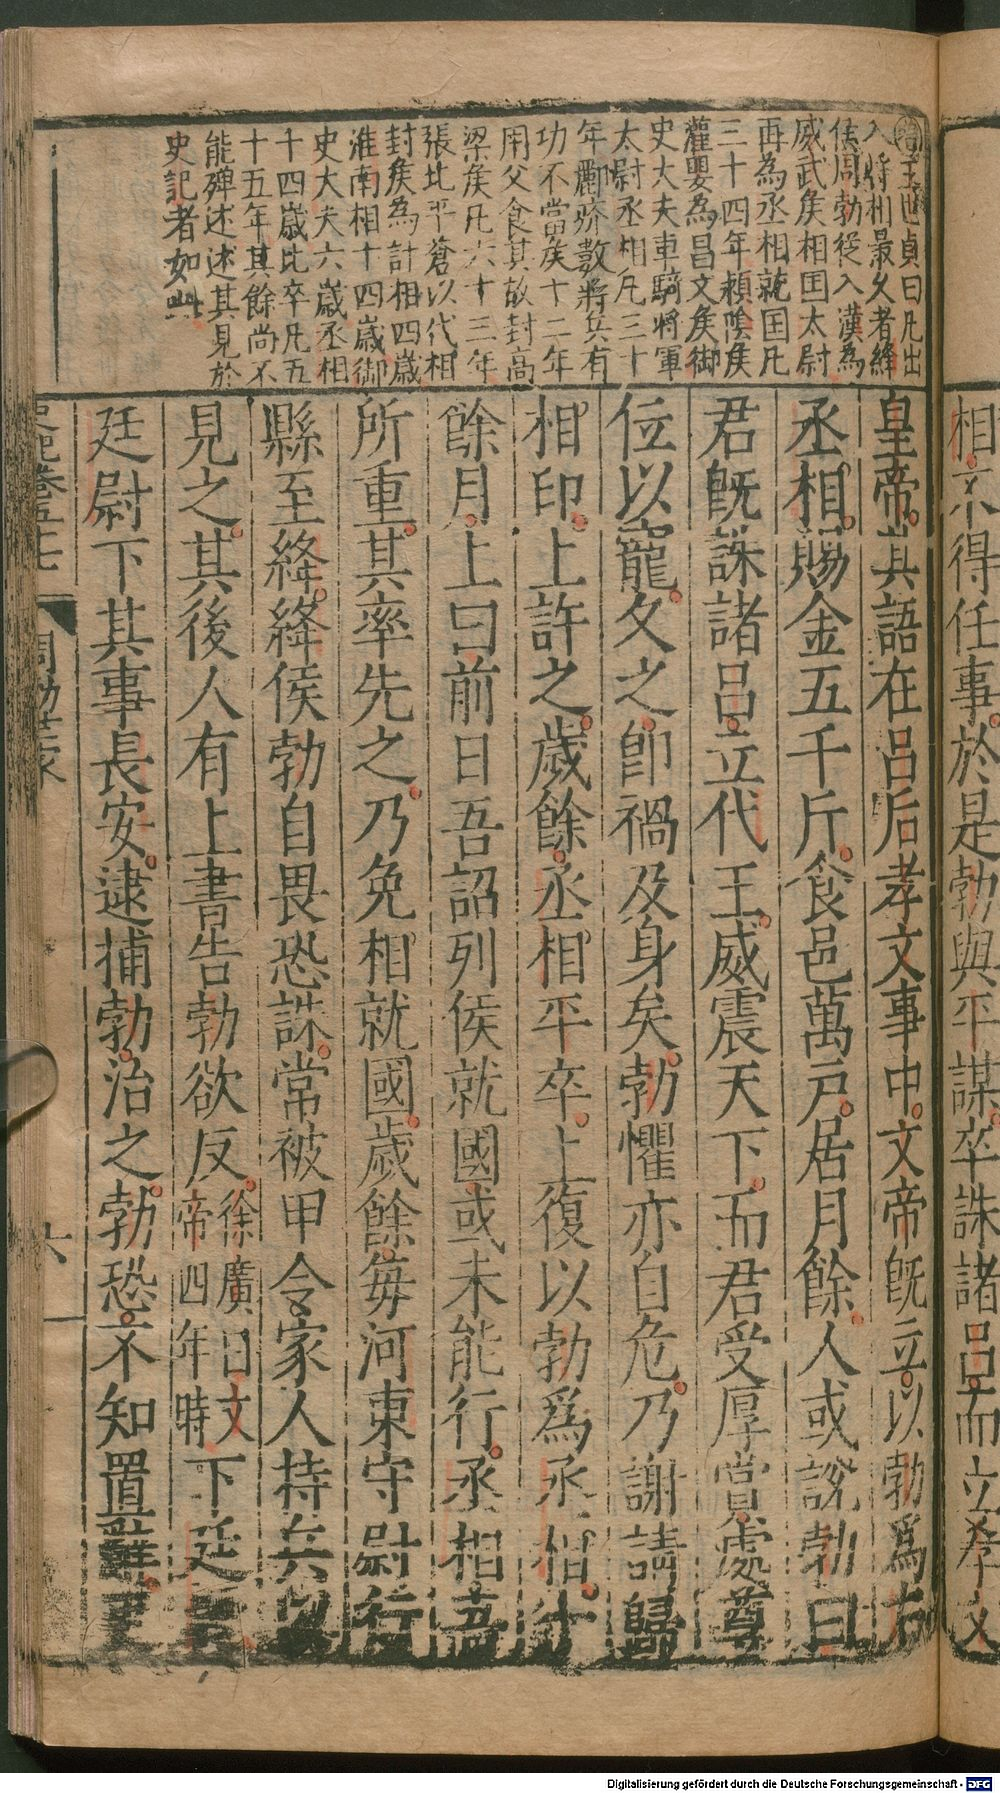 相不得任事於是勃與平謀卒誅諸呂而立孝文
王世貞曰凡出
入將相最久者絳
侯周勃從入漢為
威武矦相囯太尉
再為丞相就囯凡
三十四年頴隂矦
灌嬰為昌文矦御
史大夫車騎將軍
太尉丞相凡三十
年酈疥數將兵有
功不當矦十二年
用父食其故封高
梁矦凡六十三年
張北平蒼以代相
封矦為計相四歲
淮南相十四歲御
史大夫六歲丞相
十四歲比卒凡五
十五年其餘尚不
能殫述述其見於
史記者如此
皇帝其語在呂后孝文事中文帝旣立以勃爲右
丞相賜金五千斤食邑萬戸居月餘人或說勃曰
君旣誅諸呂立代王威震天下而君受厚賞處尊
位以寵久之卽禍及身矣勃懼亦自危乃謝請歸
相印上許之歲餘丞相平卒上復以勃爲丞相十
餘月上曰前日吾詔列侯就國或未能行丞相吾
所重其率先之乃免相就國歲餘每河東守尉行
縣至絳絳侯勃自畏恐誅常被甲令家人持兵以
見之其後人有上書告勃欲反徐廣曰文帝四年時下廷
廷尉下其事長安逮捕勃治之勃恐不知置辭
史記卷五十七 周勃世家 六
Digitalisierung gefördert durch die Deutsche Forschungsgemeinschaft - DFG